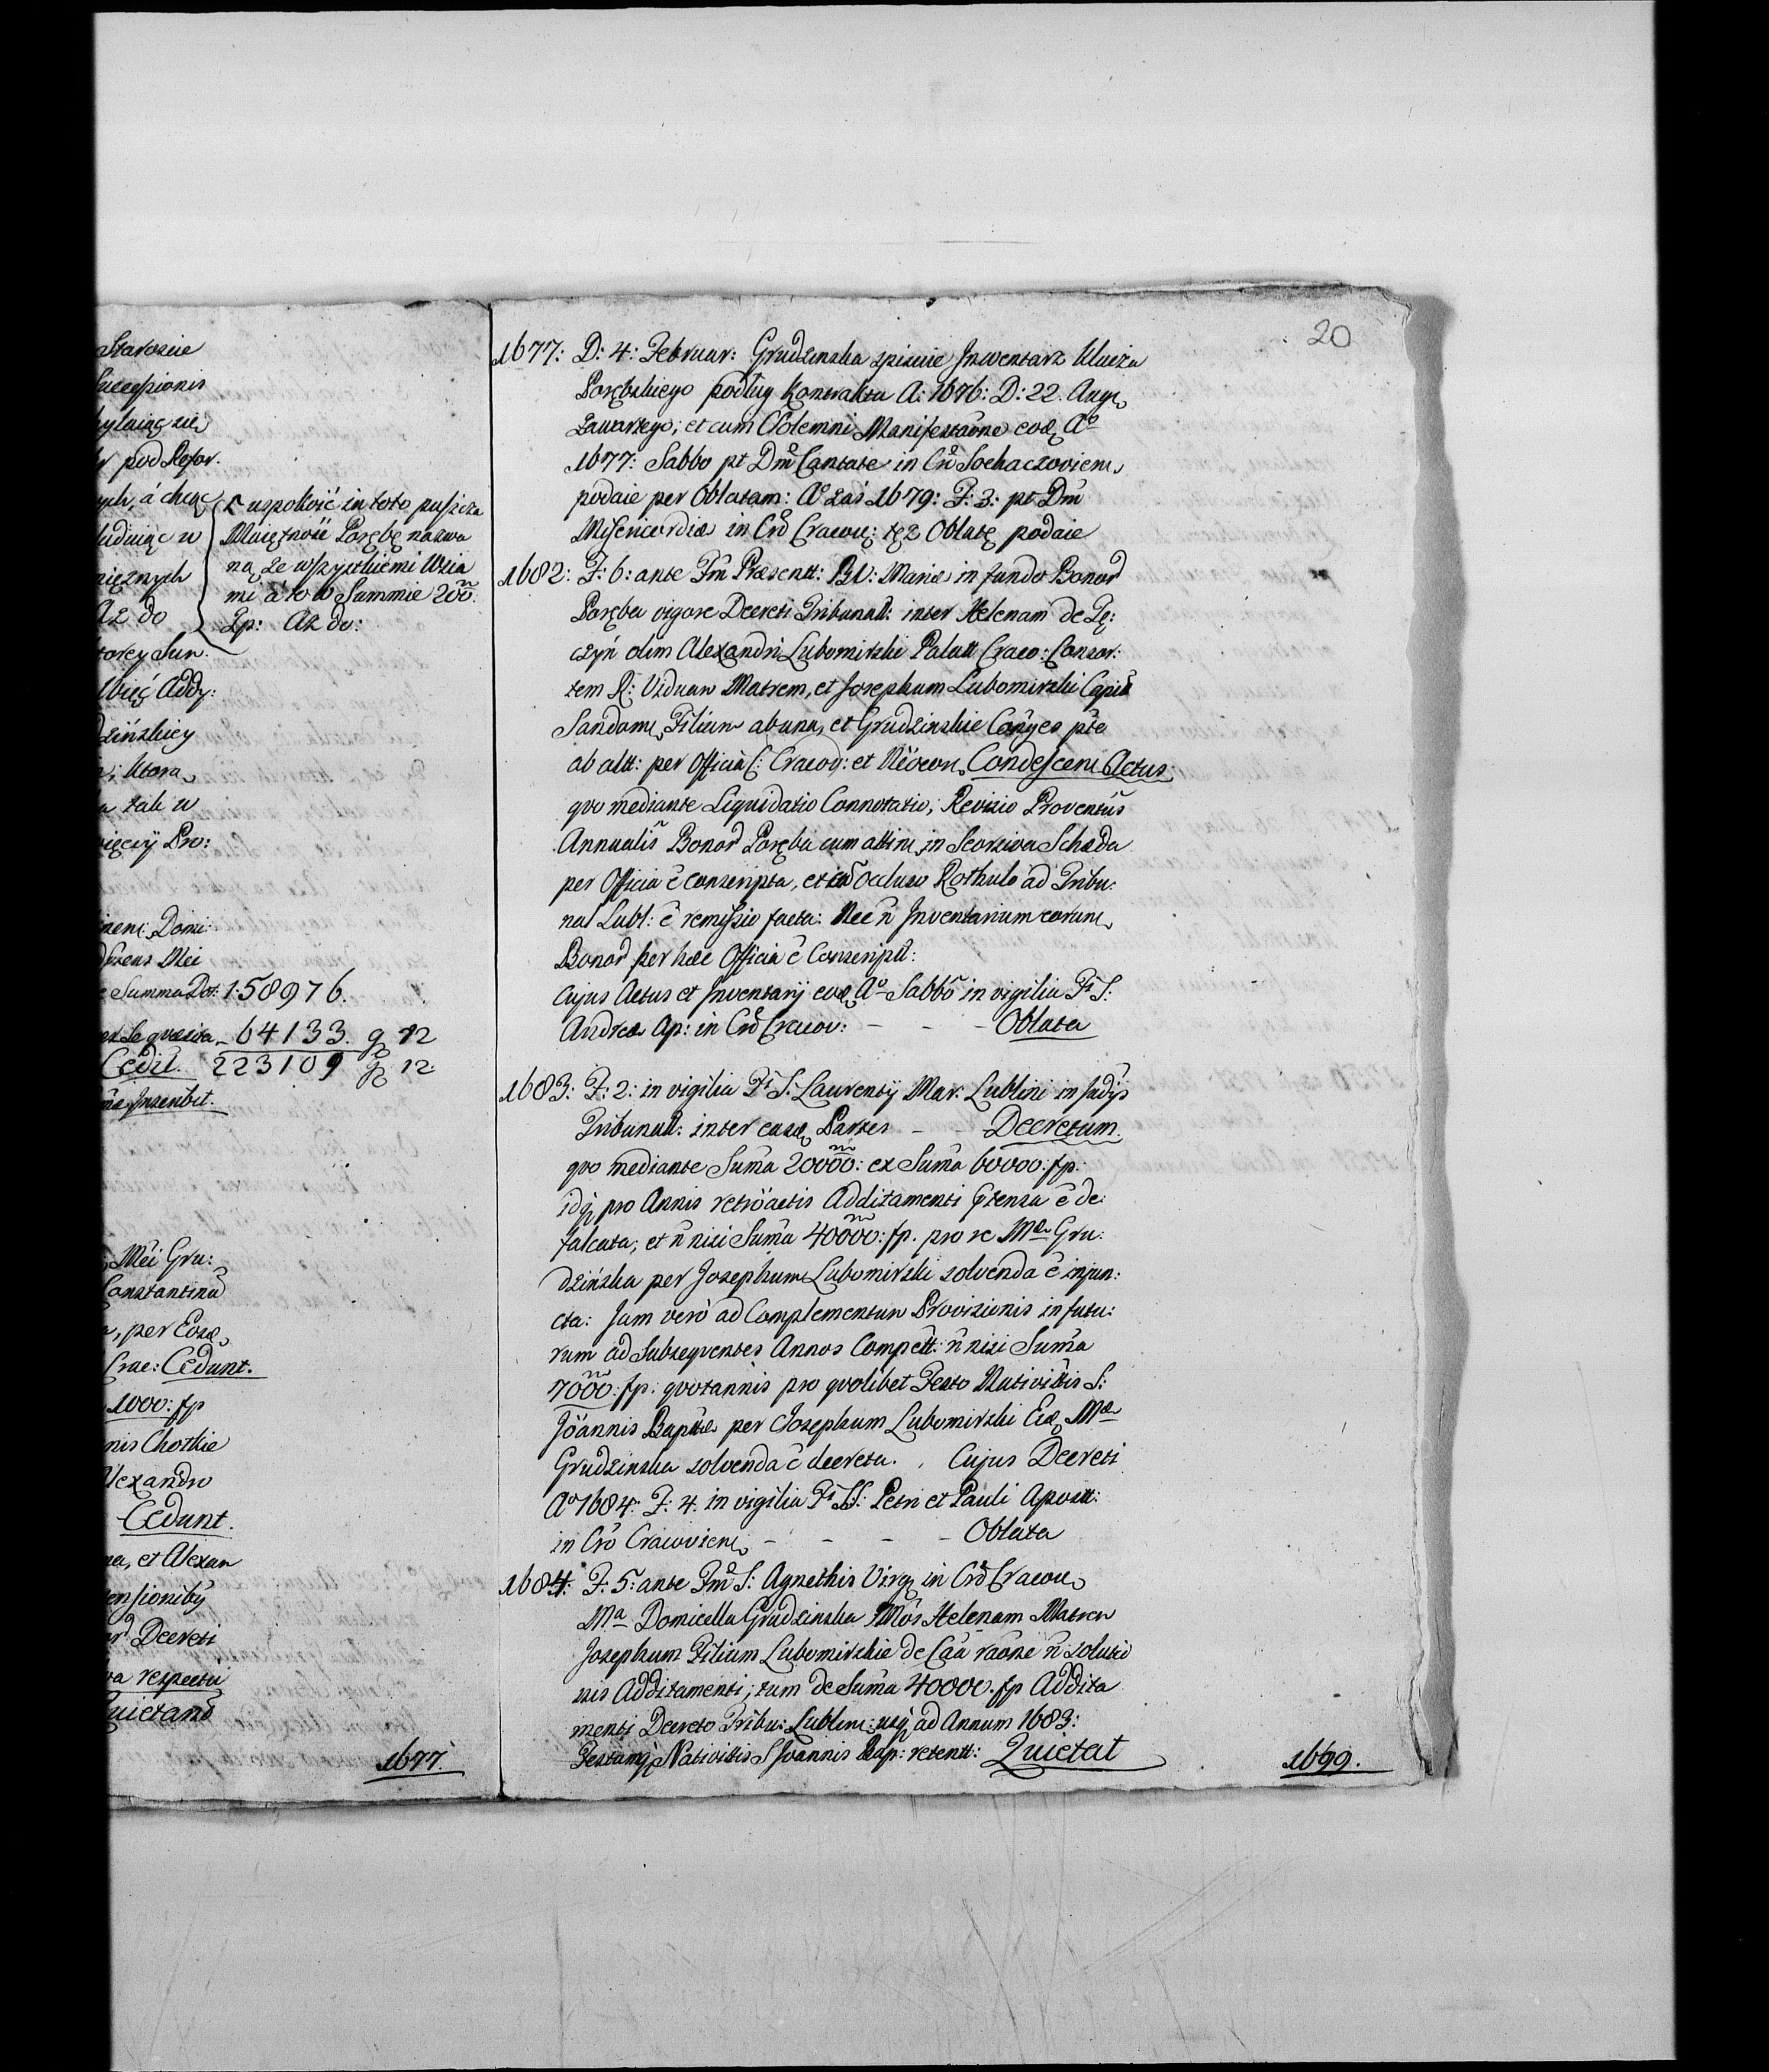 Staroscie
pod Refor.
ych, á chcąc
uspokoić in toto puszcza
Maiętność Porębę nazwa
ną ze wszystkiemi Wsia
mi á to w Summie 200
Zp: Az do:
Az do
torey Sum.
Więć Addy:
dzińskiey
; ktora
tak w
więcey Pro:
Domi:
Mei
Summa Dot: 158976.
64133. g 12
Cedit. 223109 g 12.
Inscribit.
Mei Gru:
Constantinũ
, per Eosd
Crac: Cedunt.
1000: fp
nis Chotkie
Alexandro
Cedunt.
na, et Alexan
ensionibũ
Decreti
respectu
Quietand
1677.
20
1677: D: 4: Februar: Grudzinska spisuie Inwentarz Klucza
Porębskiego podług Kontraktu A: 1676: D: 22. Aug
zawartego; et cum Solemni Manifestaõne eod Aº
1677: Sabbo pt Dm̃ Cantate in Crõ Sochaczovien
podaie per Oblatam: Aº zaś 1679: F: 3: pt Dm̃
Misericordia in Crõ Cracov: tęz Oblatę podaie
1682: F: 6: ante Fm̃ Præsentt: BV: Mariæ in fundo Bonor
Poręba vigore Decreti Tribunall: inter Helenam de Tę:
czyń olim Alexandri Lubomirski Palatt Craco: Consor:
tem R: Viduam Matrem, et Josephum Lubomirski Capit
Sandom Filium ab una, et Grudzinskie Conjges pte
ab altt: per Officia C: Cracov: et Nëocon Condescen Actus
qvo mediante Liquidatio Connotatio; Revisio Proventus
Annualis Bonor Poręba cum attin in Scorsiva Scheda
per Officia ẽ conscripta, et cũ occluso Rothulo ad Tribu:
nal Lubl: ẽ remissio facta: Nec ñ Inventarium eorum
Bonor per hæc Officia ẽ Conscript:
Cujus Actus et Inventarij eod Aº Sabbo in vigilia Fi S:
Andreæ Ap: in Crõ Cracov: - - - Oblata
1683: F: 2: in vigilia Fi S: Laurentij Mar: Lublini in Judijs
Tribunall: inter easd Partes - - Decretum.
qvo mediante Sum̃a 20000: ex Sum̃a 60000: fp.
idq pro Annis retröactis Additamenti prætensa ẽ de:
falcata; et ñ nisi Sum̃a 40000: fp. pro re Mæ Gru:
dzińska per Josephum Lubomirski solvenda ẽ injun:
cta: Jam verò ad Complementum Provisionis in futu:
rum ad Subseqventes Annos Compett: ñ nisi Sum̃a
7000: fp: qvotannis pro qvolibet Festo Nativittis S:
Jöannis Baptæ per Josephum Lubomirski Eid Mæ
Grudzinska solvenda ẽ decreta. Cujus Decreti
Aº 1684: F: 4. in vigilia Fi SS: Petri et Pauli Apostt:
in Crõ Cracovien - - - - Oblata
1684: F: 5: ante Fm̃ S: Agnethis Virg in Crõ Cracov
Ma Domicella Grudzinska Mõs Helenam Matrem
Josephum Filium Lubomirskie de Caũ raõne ñ solutio
nis Additamenti; tum de Sum̃a 40000. fp Addita
menti Decreto Tribu: Lublin: usq ad Annum 1683:
Festumq Nativittis S Joannis Bap: retentt: Quietat
1699.